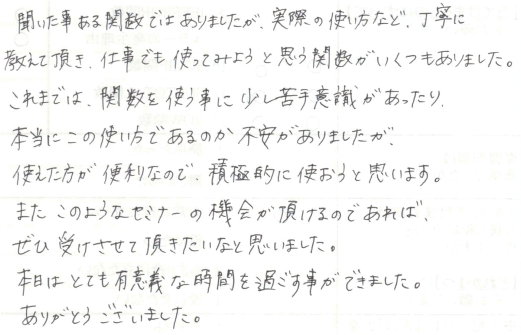 聞いた事ある関数ではありましたが、実際の使い方など、丁寧に
教えて頂き、仕事でも使ってみようと思う関数がいくつもありました。
これまでは、関数を使う事に少し苦手意識があったり、
本当にこの使い方であるのか不安がありましたが、
使えた方が便利なので、積極的に使おうと思います。
また このようなセミナーの機会が頂けるのであれば、
ぜひ受けさせて頂きたいなと思いました。
本日はとても有意義な時間を過ごす事ができました。
ありがとうございました。